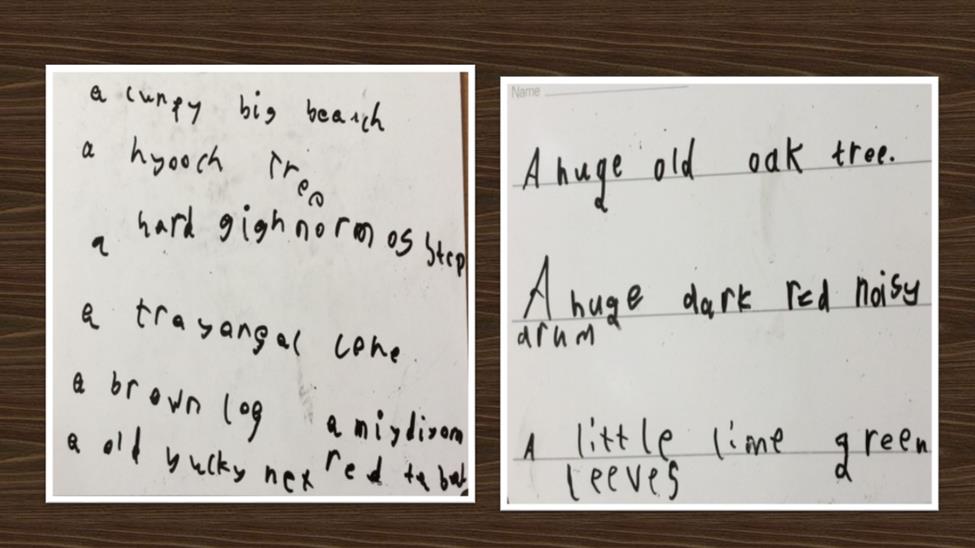 a big
a hyooch Tree
a hard gighnormos step
a trayangal cone
a brown log a miydiyom
a old yucky nex red
Name
A huge old oak tree.
A huge dark red noisy
drum
A little lime green
leeves